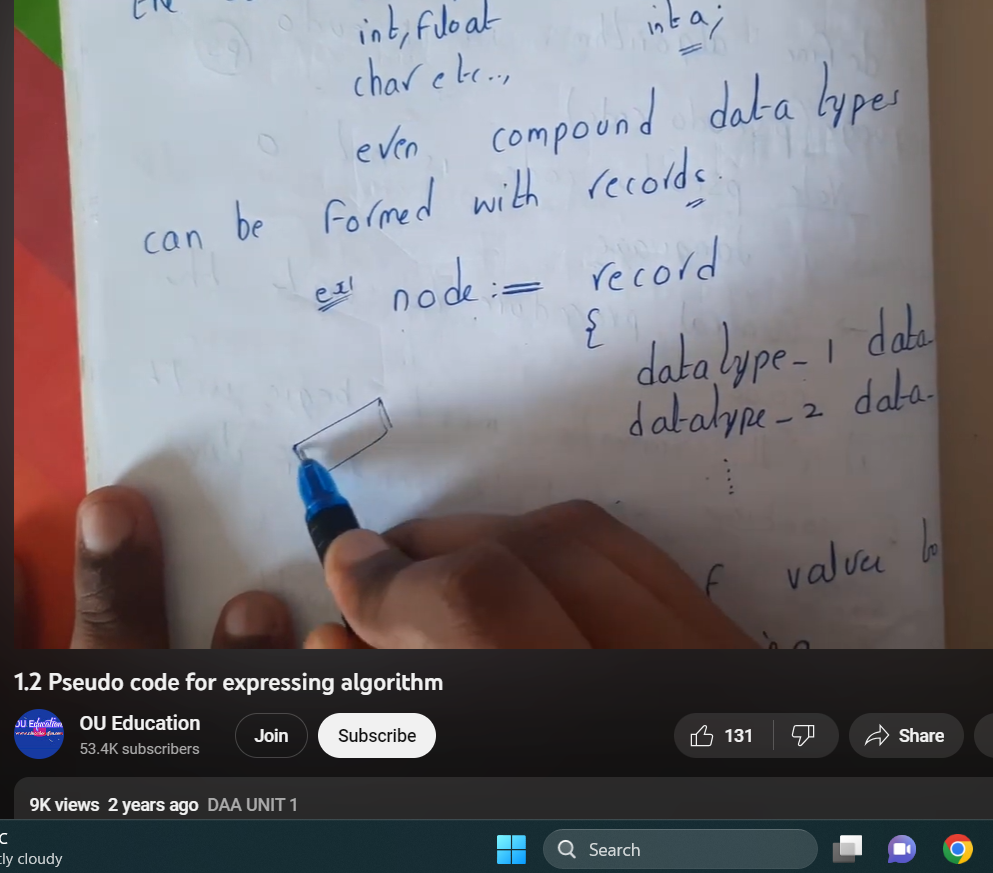 the
int, float int a;
char etc..,
even compound data types
can be formed with records.
ex! node := record
{
datatype_1 data
datatype_2 data-
f value
1.2 Pseudo code for expressing algorithm
OU Education
53.4K subscribers
Join
Subscribe
131
Share
9K views 2 years ago DAA UNIT 1
C
tly cloudy
Search